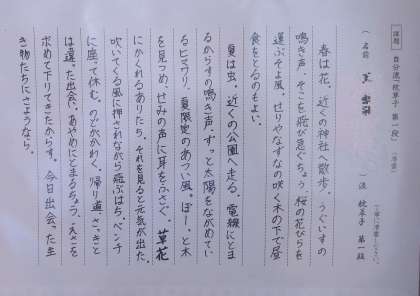 課題 自分流「枕草子 第一段」(清書)
(名前
)流 枕草子 第一段
春は花。近くの神社へ散歩。うぐいすの
鳴き声、そこを飛び急ぐちょう、桜の花びらを
運ぶそよ風。せりやなずなの咲く木の下で昼
食をとるのもよい。
夏は虫。近くの公園へ走る。電線にとま
るからすの鳴き声、ずっと太陽をながめてい
るヒマワリ、夏限定のあつい風。ぼーっと木
を見つめ、せみの声に耳をふさぐ。草花
にかくれるありたち。それを見ると元気が出た。
吹いてくる風に押されながら飛ぶはち。ベンチ
に座って休む。のどがかわく。帰り道、さっきと
は違った出会い。あやめにとまるちょう、えさを
求めて下りてきたからす。今日出会った生
き物たちにさようなら。